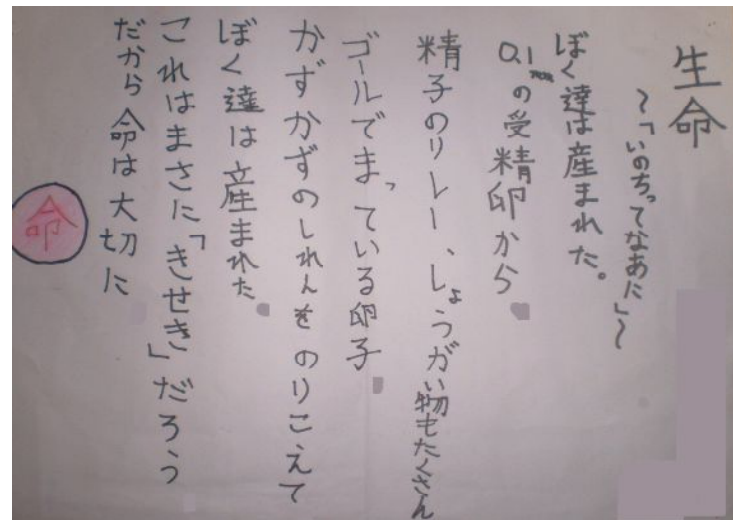 生命
～「いのちってなあに」～
ぼく達は産まれた。
0.1mmの受精卵から
精子のリレー、しょうがい物もたくさん
ゴールでまっている卵子
かずかずのしれんをのりこえて
ぼく達は産まれた。
これはまさに「きせき」だろう
だから命は大切に
命